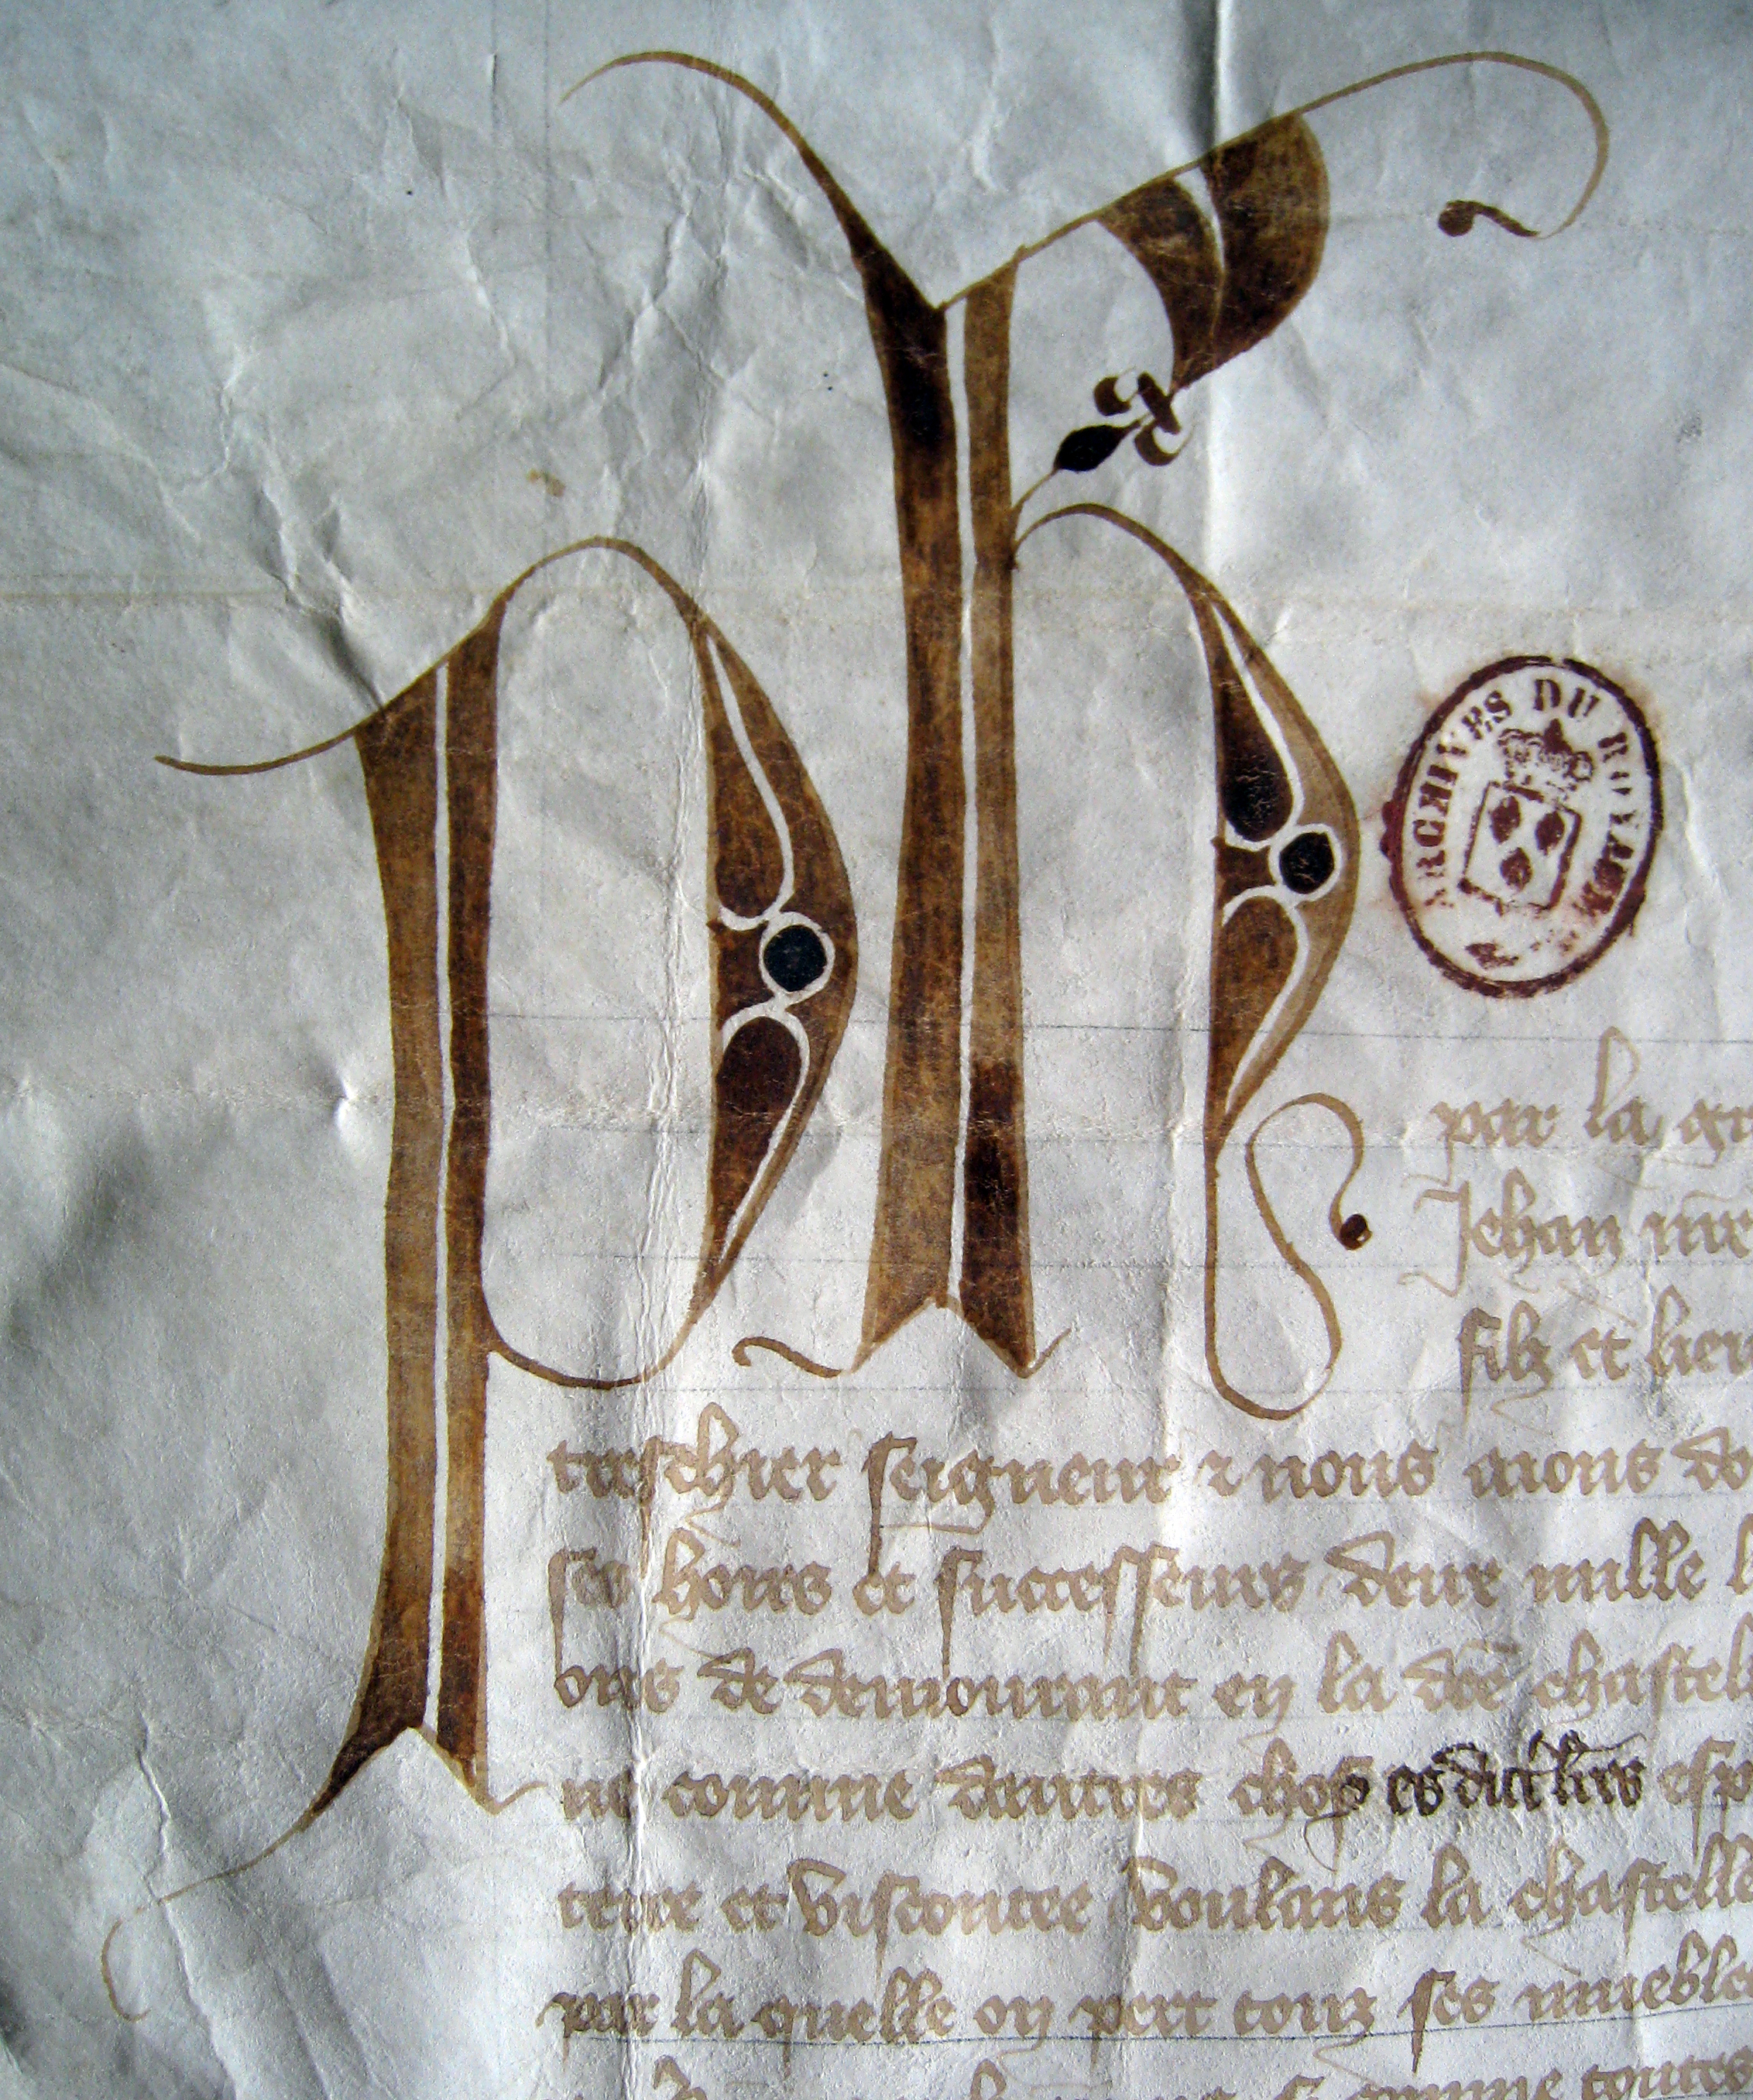 Ph
ARCHIVES DU ROYAUME
par la gr
Jehan nre
filz et hier
treschier seigneur & nous aions do
ses hoirs et successeurs deux mille l
ons de demourant en la dce chastell
ne comme dautres choses es dictes lres esp
terre et viscontee voulans la chastelle
par la quelle on pert touz ses mueble
comme toutes